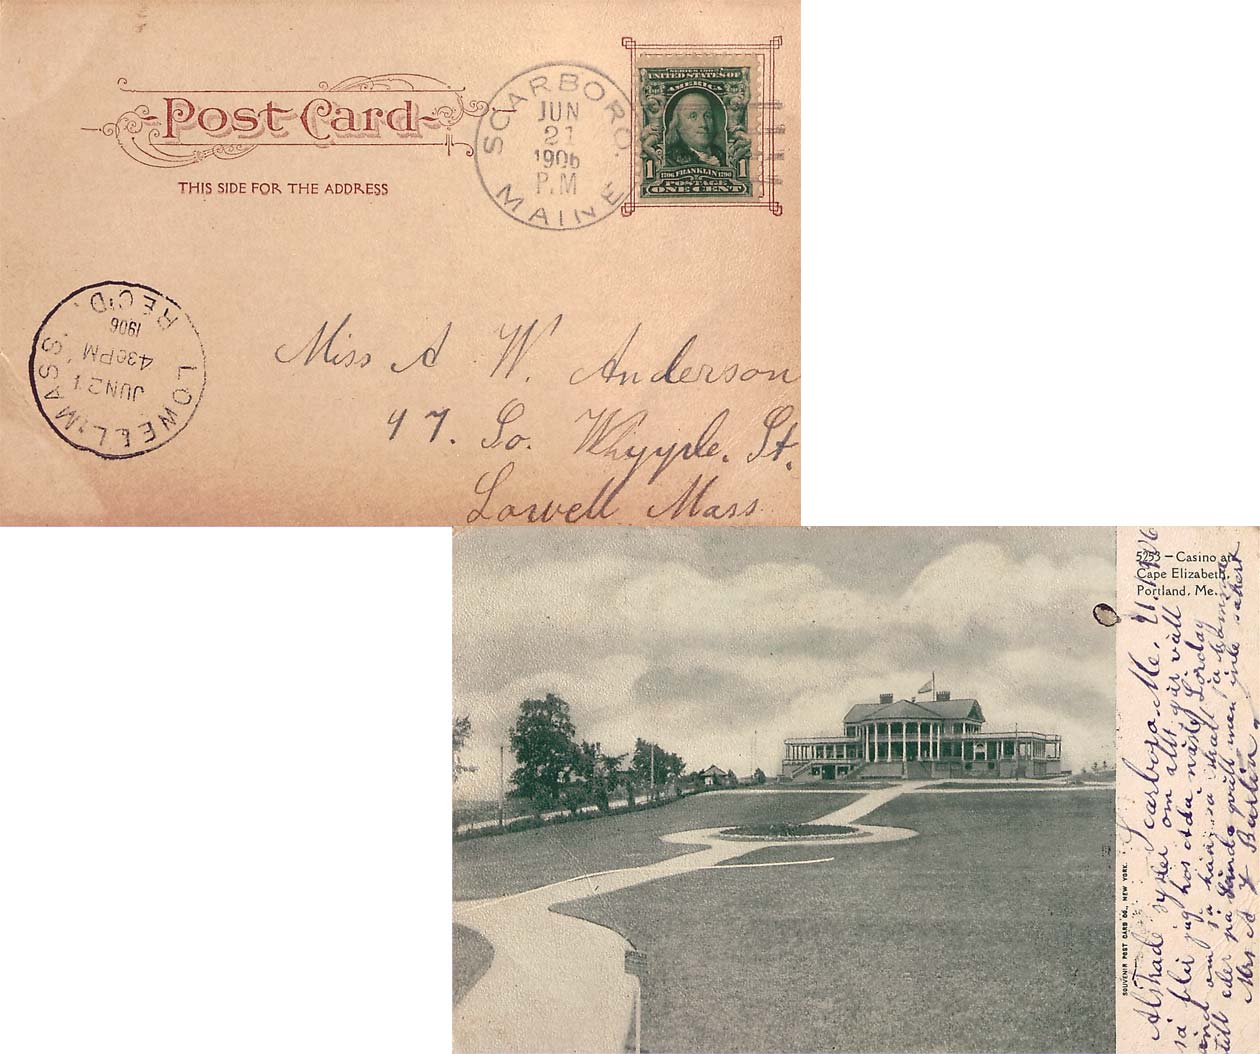 Post Card
THIS SIDE FOR THE ADDRESS
SCARBORO.
JUN
21
1906
P.M
MAINE
SERIES 1902
UNITED STATES OF
AMERICA
1706 FRANKLIN 1790
POSTAGE
1 ONE CENT 1
LOWELL, MASS.
JUN 21
430PM
1906
REC'D.
Miss A W. Anderson
47. So. Whipple. St.
Lowell Mass
5253 — Casino at
Cape Elizabeth,
Portland, Me.
SOUVENIR POST CARD CO., NEW YORK.
Scarboro Me. 21. 1906
Älskade syster om allt går väll
så blir jag hos dda nästa Lörday
and om så händ så skall ja komma
till eder på Sundag
Mrs A